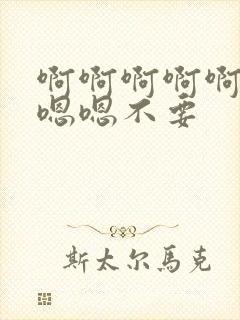 啊啊啊啊啊
嗯嗯不要
斯太尔馬克